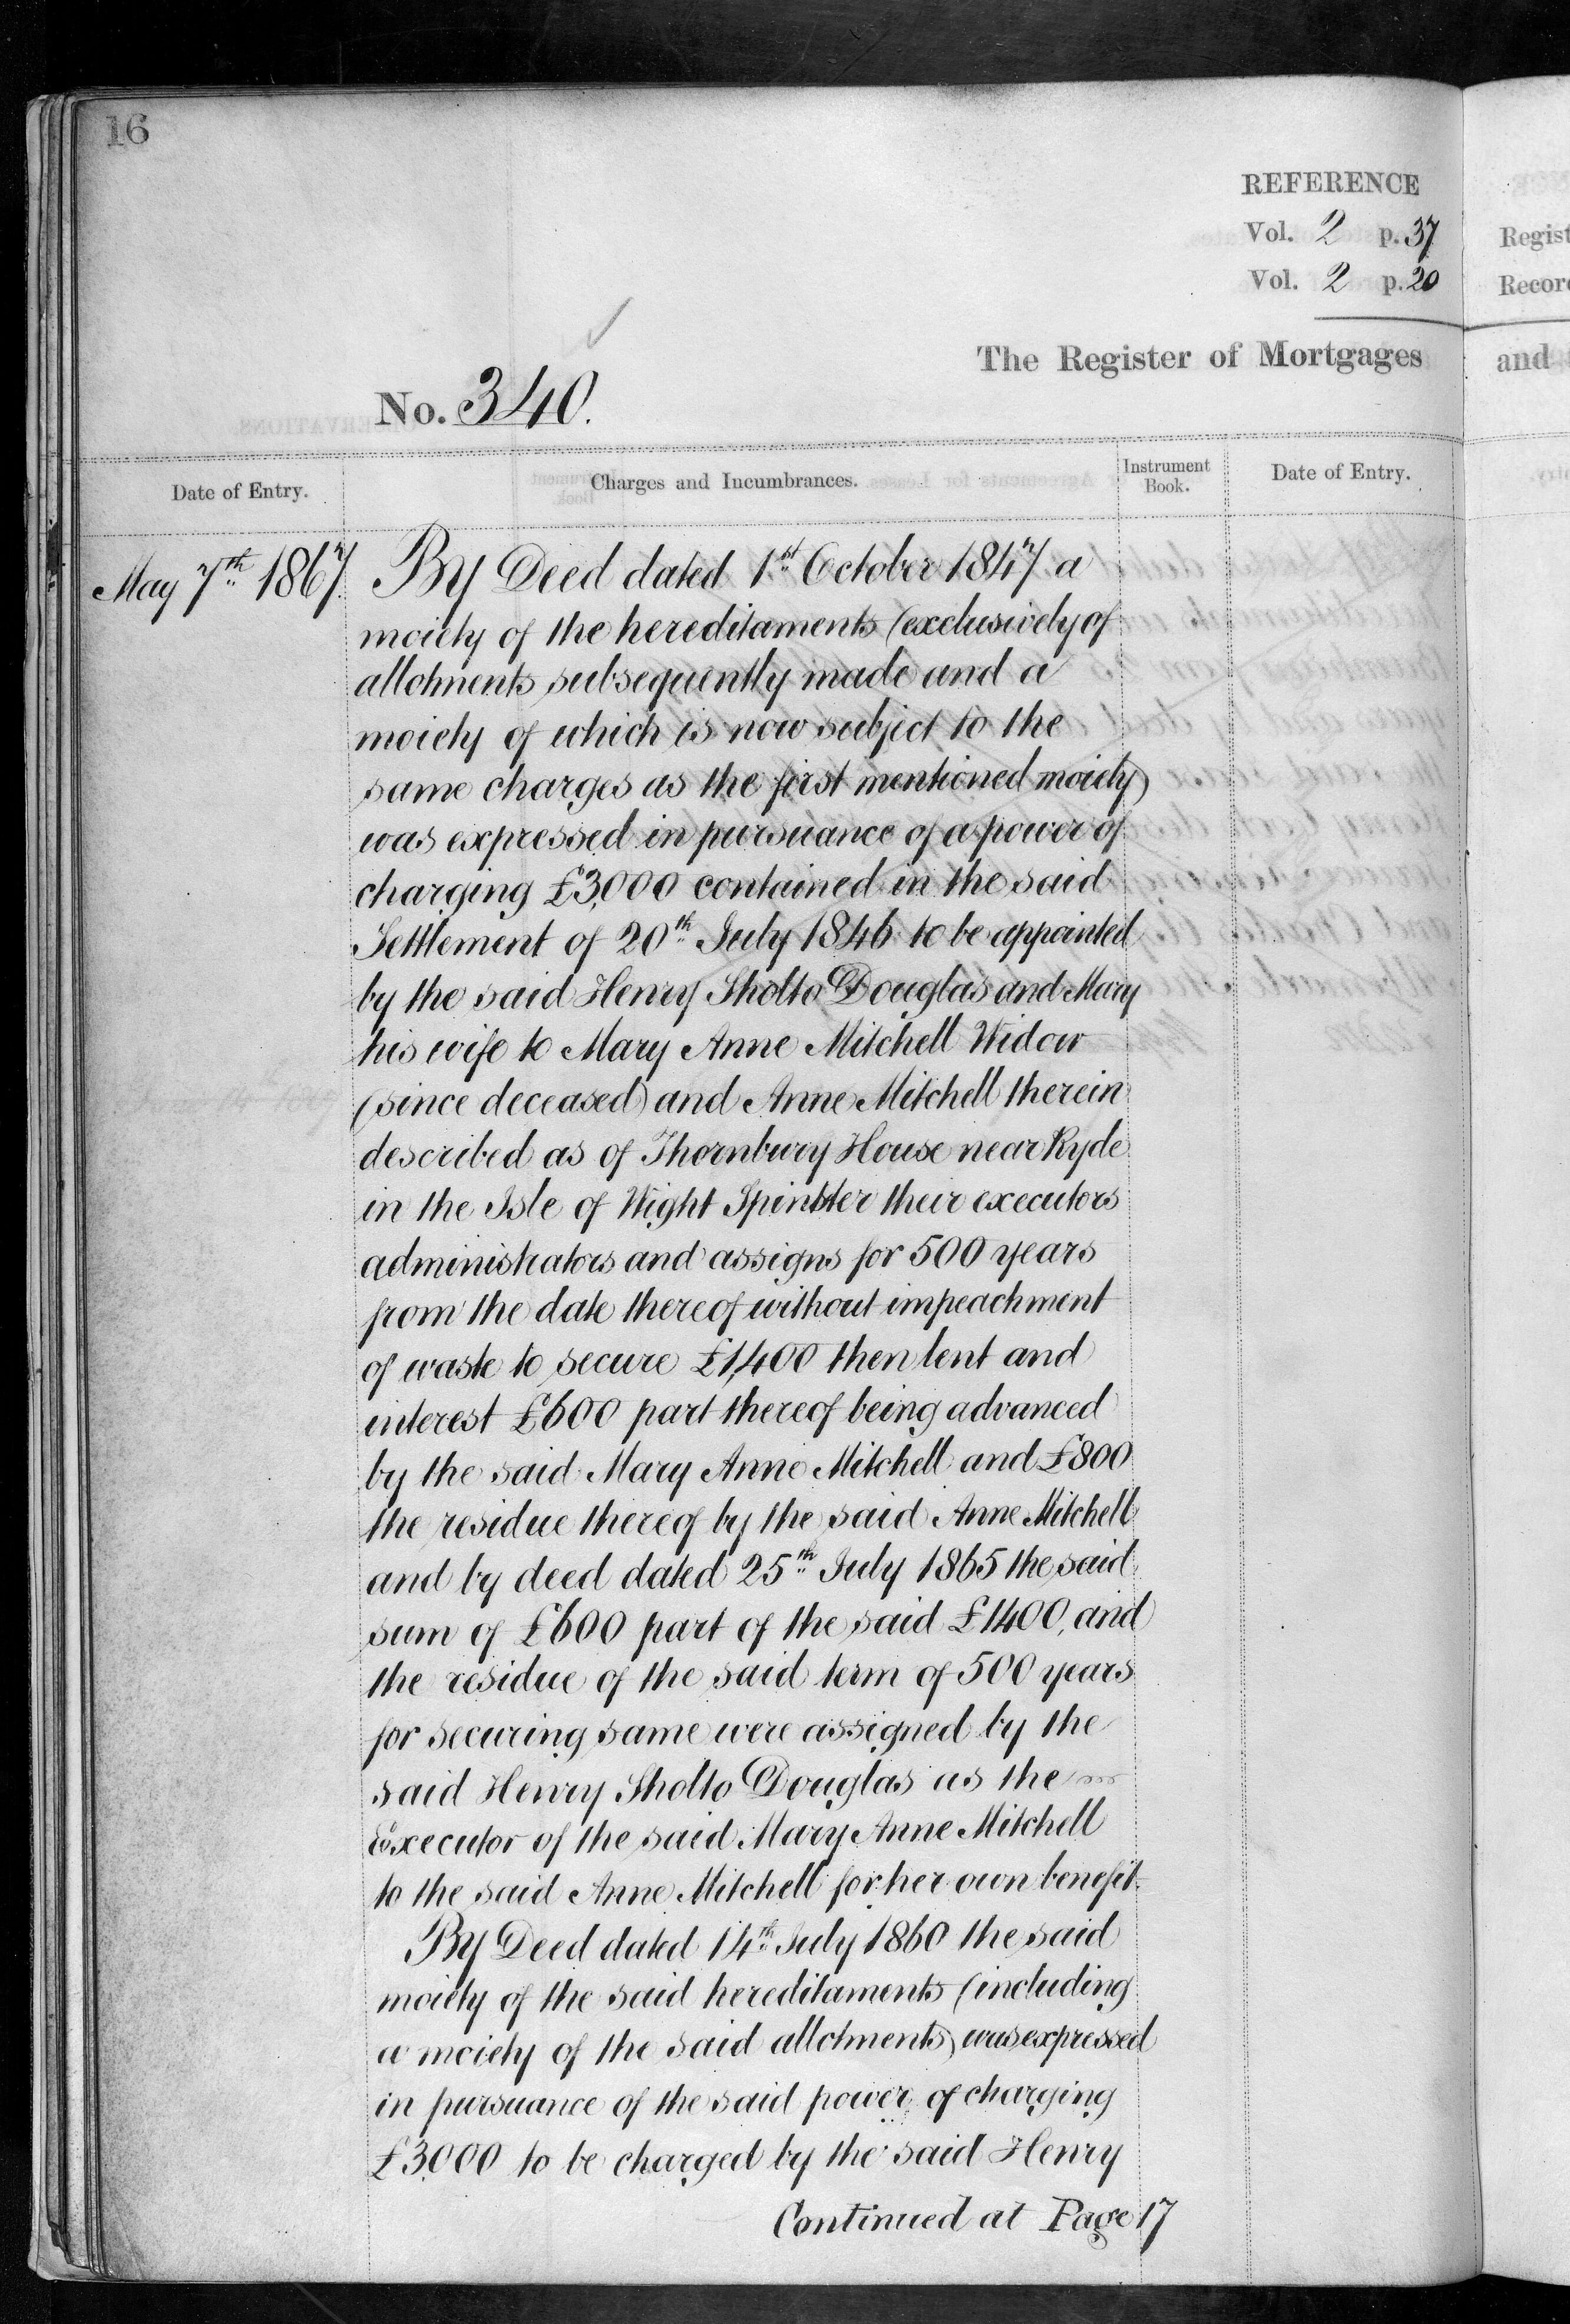 16
REFERENCE
Vol. 2 p. 37
Vol. 2 p. 20
Regist
Recor
The Register of Mortgages
and
No. 340.
Date of Entry.
Charges and Incumbrances.
Instrument
Book.
Date of Entry.
May 7th 1867.
By Deed dated 1st October 1847 a
moiety of the hereditaments (exclusively of
allotments subsequently made and a
moiety of which is now subject to the
same charges as the first mentioned moiety)
was expressed in pursuance of a power of
charging £3,000 contained in the said
Settlement of 20th July 1846 to be appointed
by the said Henry Sholto Douglas and Mary
his wife to Mary Anne Mitchell Widow
(since deceased) and Anne Mitchell therein
described as of Thornbury House near Ryde
in the Isle of Wight Spinster their executors
administrators and assigns for 500 years
from the date thereof without impeachment
of waste to secure £1,400 then lent and
interest £600 part thereof being advanced
by the said Mary Anne Mitchell and £800
the residue thereof by the said Anne Mitchell
and by deed dated 25th July 1865 the said
sum of £600 part of the said £1400, and
the residue of the said term of 500 years
for securing same were assigned by the
said Henry Sholto Douglas as the
Executor of the said Mary Anne Mitchell
to the said Anne Mitchell for her own benefit.
By Deed dated 14th July 1860 the said
moiety of the said hereditaments (including
a moiety of the said allotments) was expressed
in pursuance of the said power of charging
£3,000 to be charged by the said Henry
Continued at Page 17